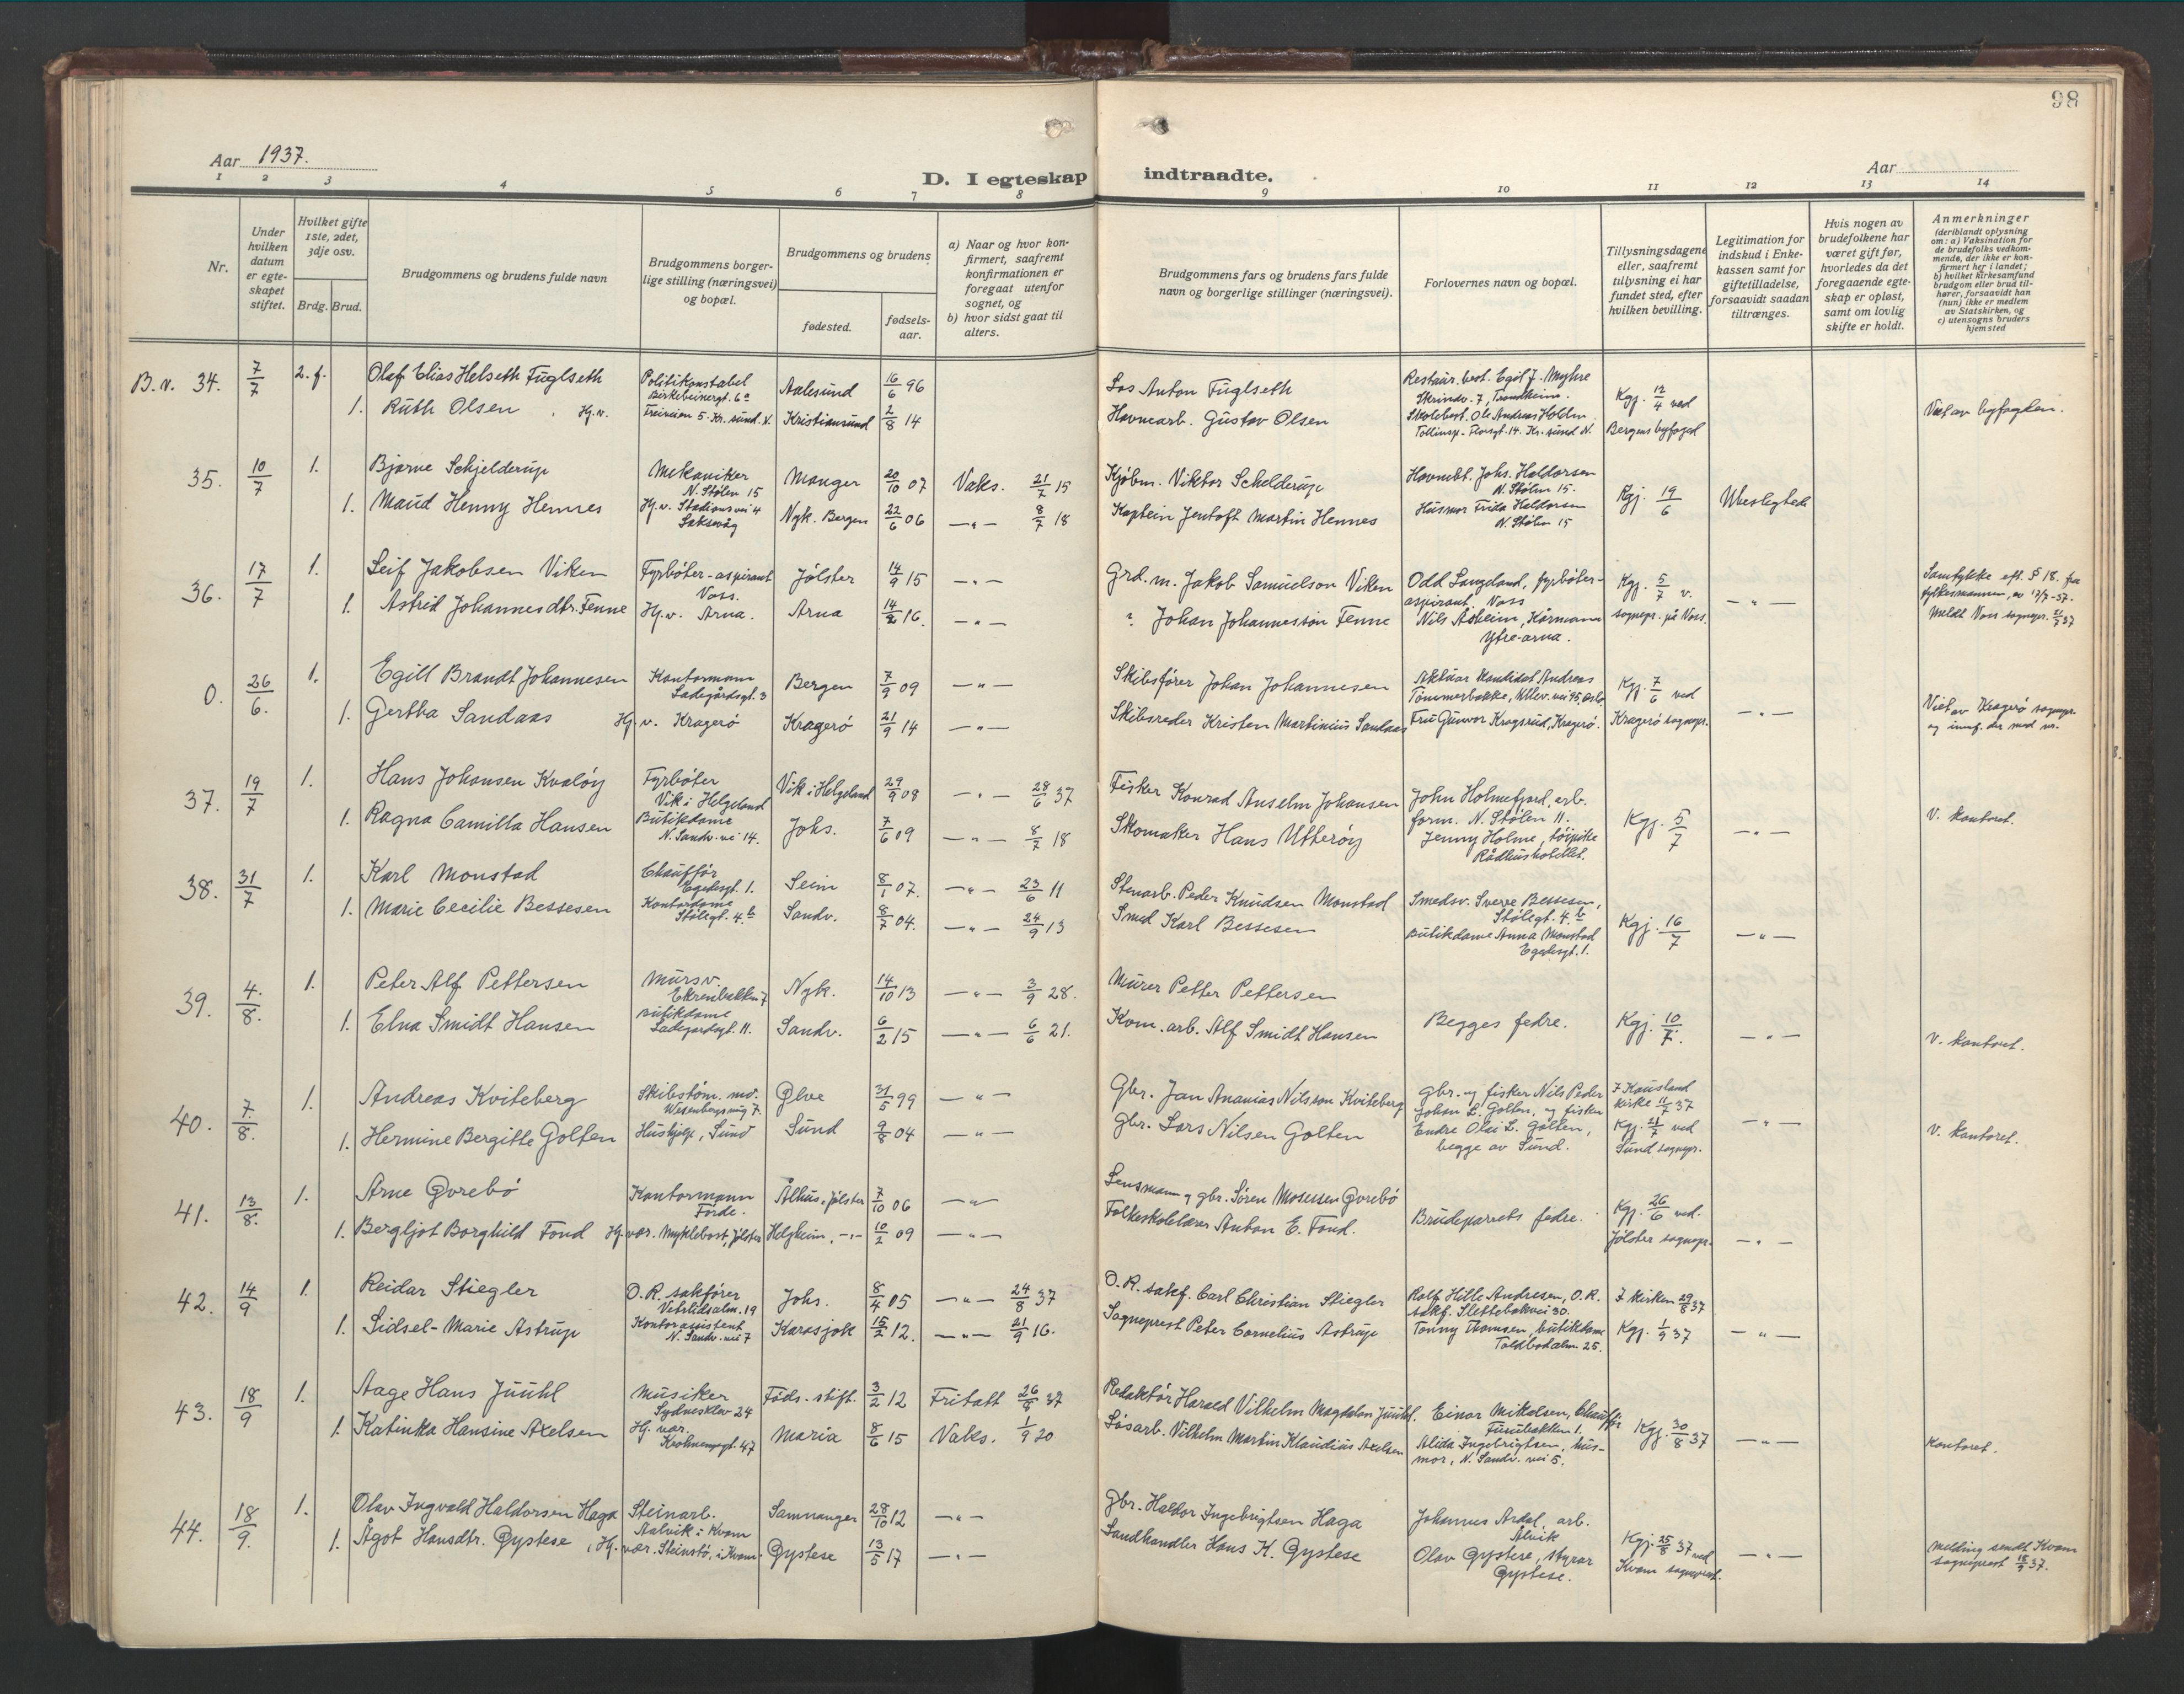 98
Aar 1937.
D. I egteskap indtraadte.
Aar
1 2 3 4 5 6 7 8 9 10 11 12 13 14
Nr.
Under hvilken datum er egteskapet stiftet.
Hvilket gifte 1ste, 2det, 3dje osv.
Brdg. Brud.
Brudgommens og brudens fulde navn
Brudgommens borgerlige stilling (næringsvei) og bopæl.
Brudgommens og brudens
fødested.
fødselsaar.
a) Naar og hvor konfirmert, saafremt konfirmationen er foregaat utenfor sognet, og
b) hvor sidst gaat til alters.
Brudgommens fars og brudens fars fulde navn og borgerlige stillinger (næringsvei).
Forlovernes navn og bopæl.
Tillysningsdagene eller, saafremt tillysning ei har fundet sted, efter hvilken bevilling.
Legitimation for indskud i Enkekassen samt for giftetilladelse, forsaavidt saadan tiltrænges.
Hvis nogen av brudefolkene har været gift før, hvorledes da det foregaaende egteskap er opløst, samt om lovlig skifte er holdt.
Anmerkninger
(deriblandt oplysning om: a) Vaksination for de brudefolks vedkommende, der ikke er konfirmert her i landet; b) hvilket kirkesamfund brudgom eller brud tilhører, forsaavidt han (hun) ikke er medlem av Statskirken, og c) utensogns bruders hjemsted
B.v. 34. 7/7 2. f. Olaf Elias Helseth Fuglseth Politikonstabel Birkebeinergt. 6a Aalesund 16/6 96 Los Anton Fuglseth Restaur. best. Egil J. Myhre Skrindv. 7, Trondheim. Kgj. 12/4 ved
1. Ruth Olsen, Hj.v. Freiveien 5. Kr.sund. N. Kristiansund 2/8 14 Havnearb. Gustav Olsen Skolebest. Ole Andreas Holdm Kr. sund N. Bergens byfoged Viet av byfogden.
35. 10/7 1. Bjarne Schjelderup Mekaniker N. Stølen 15 Manger 20/10 07 Vaks. 21/7 15 Kjøbm. Viktor Schelderup Johs. Haldorsen N. Stølen 15. Kgj. 19/6 Ubeslegtede
1. Maud Henny Hennes Hj.v. Stadionsvei 4 Laksevåg Nyk. Bergen 22/6 06 —"— 8/7 18 Kaptein Jentoft Martin Hennes Husmor Frida Haldorsen N. Stølen 15
36. 17/7 1. Leif Jakobsen Viken Fyrbøter-aspirant Voss. Jølster 14/9 15 —"— Grd.m. Jakob Samuelson Viken Odd Langeland, fyrbøter-aspirant, Voss Kgj. 5/7 v. —"— Samtykke eft. § 18. fra fylkesmannen, av 12/7-37.
1. Astrid Johannesdtr. Fenne Hj.v. Arna. Arna 14/2 16. —"— " Johan Johannesson Fenne Nils Åsheim, Kårmann Ytre-arna. sognepr. på Voss. Meldt Voss sognepr. 21/7 37
0. 26/6. 1. Egill Brandt Johannesen Kontormann Ladegårdsgt. 3 Bergen 7/9 09 —"— Skibsfører Johan Johannesen Aktuar Kandidat Andreas Tømmerbakke, Ullev. vei 95, Oslo Kgj. 7/6 ved
1. Gertha Sandaas Hj.v. Kragerø Kragerø 21/9 14 —"— Skibsreder Kristen Martinius Sandaas Fru Gunvor Krogsrud, Kragerø. Kragerø sognepr. —"— Viet av Kragerø sognepr. og innf. der med nr.
37. 19/7 1. Hans Johansen Kvaløy Fyrbøter Vik i Helgeland Vik i Helgeland 29/9 08 —"— 28/6 37 Fisker Konrad Anselm Johansen John Holmefjord, arb. form. N. Stølen 11. Kgj. 5/7 —"— V. kontoret.
1. Ragna Camilla Hansen Butikdame N. Sandv. vei 14. Johs. 7/6 09 —"— 8/7 18 Skomaker Hans Utterøy Jenny Holme, tøipike Rådhushotellet.
38. 31/7 1. Karl Monstad Chauffør Egedesgt. 1. Seim 8/1 07. —"— 23/6 11 Stenarb. Peder Knudsen Monstad Smedsv. Sverre Bessesen, Stølegt. 4b Kgj. 16/7 —"—
1. Marie Cecilie Bessesen Kontordame Stølegt. 4b Sandv. 8/7 04. —"— 24/9 13 Smed Karl Bessesen Butikdame Anna Monstad Egedesgt. 1.
39. 4./8. 1. Peter Alf Pettersen Mursv. Ekrenbakken 7 Nyk. 14/10 13 —"— 3/9 28. Murer Petter Pettersen Begges fedre. Kgj. 10/7. —"— V. kontoret.
1. Elna Smidt Hansen Butikdame Ladegårdsgt. 11. Sandv. 6/2 15 —"— 6/6 21. Kom. arb. Alf Smidt Hansen
40. 7./8. 1. Andreas Kviteberg Skibstøm. md. Wesenbergsmug 7. Ølve 31/5 99 —"— Gbr. Jan Ananias Nilsson Kviteberg Gbr. og fisker Nils Peder Johan L. Golten, og fisker I Kausland kirke 11/7 37
1. Hermine Bergitte Golten Hushjelp, Sund Sund 9/8 04 —"— Gbr. Lars Nilsen Golten Endre Olai L. Golten, begge av Sund. Kgj. 21/7 ved Sund sognepr. —"— V. kontoret.
41. 13/8. 1. Arne Øvrebø Kontormann Førde. Ålhus, Jølster 7/10 06 —"— Lensmann og gbr. Søren Mosessen Øvrebø Brudeparrets fedre. Kgj. 26/6 ved.
1. Bergljot Borghild Fond Hj. vær. Myklebost, Jølster Helgheim, —"— 10/2 09 —"— Folkeskolelærer Anton E. Fond. Jølster sognepr. —"—
42. 14/9 1. Reidar Stiegler O.R. sakfører Vetrlidsalm. 19 Johs. 8/4 05 —"— 24/8 37 O.R. sakf. Carl Christian Stiegler Rolf Hille Andresen, O.R. sakf. Slettebakvei 30. I kirken 29/8 37
1. Lidsel-Marie Astrup Kontorassistent N. Sandv. vei 7 Karasjok 15/2 12. —"— 21/9 16. Sogneprest Peter Cornelius Astrup Tonny Thomsen, butikdame Toldbodalm 25. Kgj. 1/9 37 —"—
43. 18/9 1. Aage Hans Juuhl Musiker Sydneskleiv 24 Føds.-stift. 3/2 12 Fritatt 26/8 37 Redaktør Harald Vilhelm Magdalon Juuhl. Einar Mikalsen, Chauffør Furubakken 1. Kgj. 30/8 37 —"—
1. Katinka Hansine Axelsen Hj. vær. Krohnengt. 47 Maria 8/6 15 Vaks. 1/9 20 Løsarb. Vilhelm Martin Klaudius Axelsen Alida Ingebrigtsen, husmor, N. Sandv. vei 5. Kontoret.
44. 18/9. 1. Olav Ingvald Haldorsen Haga Steinarb. Aalvik i Kvam Samnanger 28/10 12 —"— Gbr. Haldor Ingebrigtsen Haga Johannes Ardal, arb. Ålvik Kgj. 25/8 37 ved
1. Ågot Hansdtr. Øystese, Hj. vær. Steinstø, i Kvam. Øystese 13/5 17 —"— Landhandler Hans K. Øystese Olav Øystese, styrar Øystese. Kvam sogneprest. —"— Melding sendt Kvam sogneprest 18/9 37.